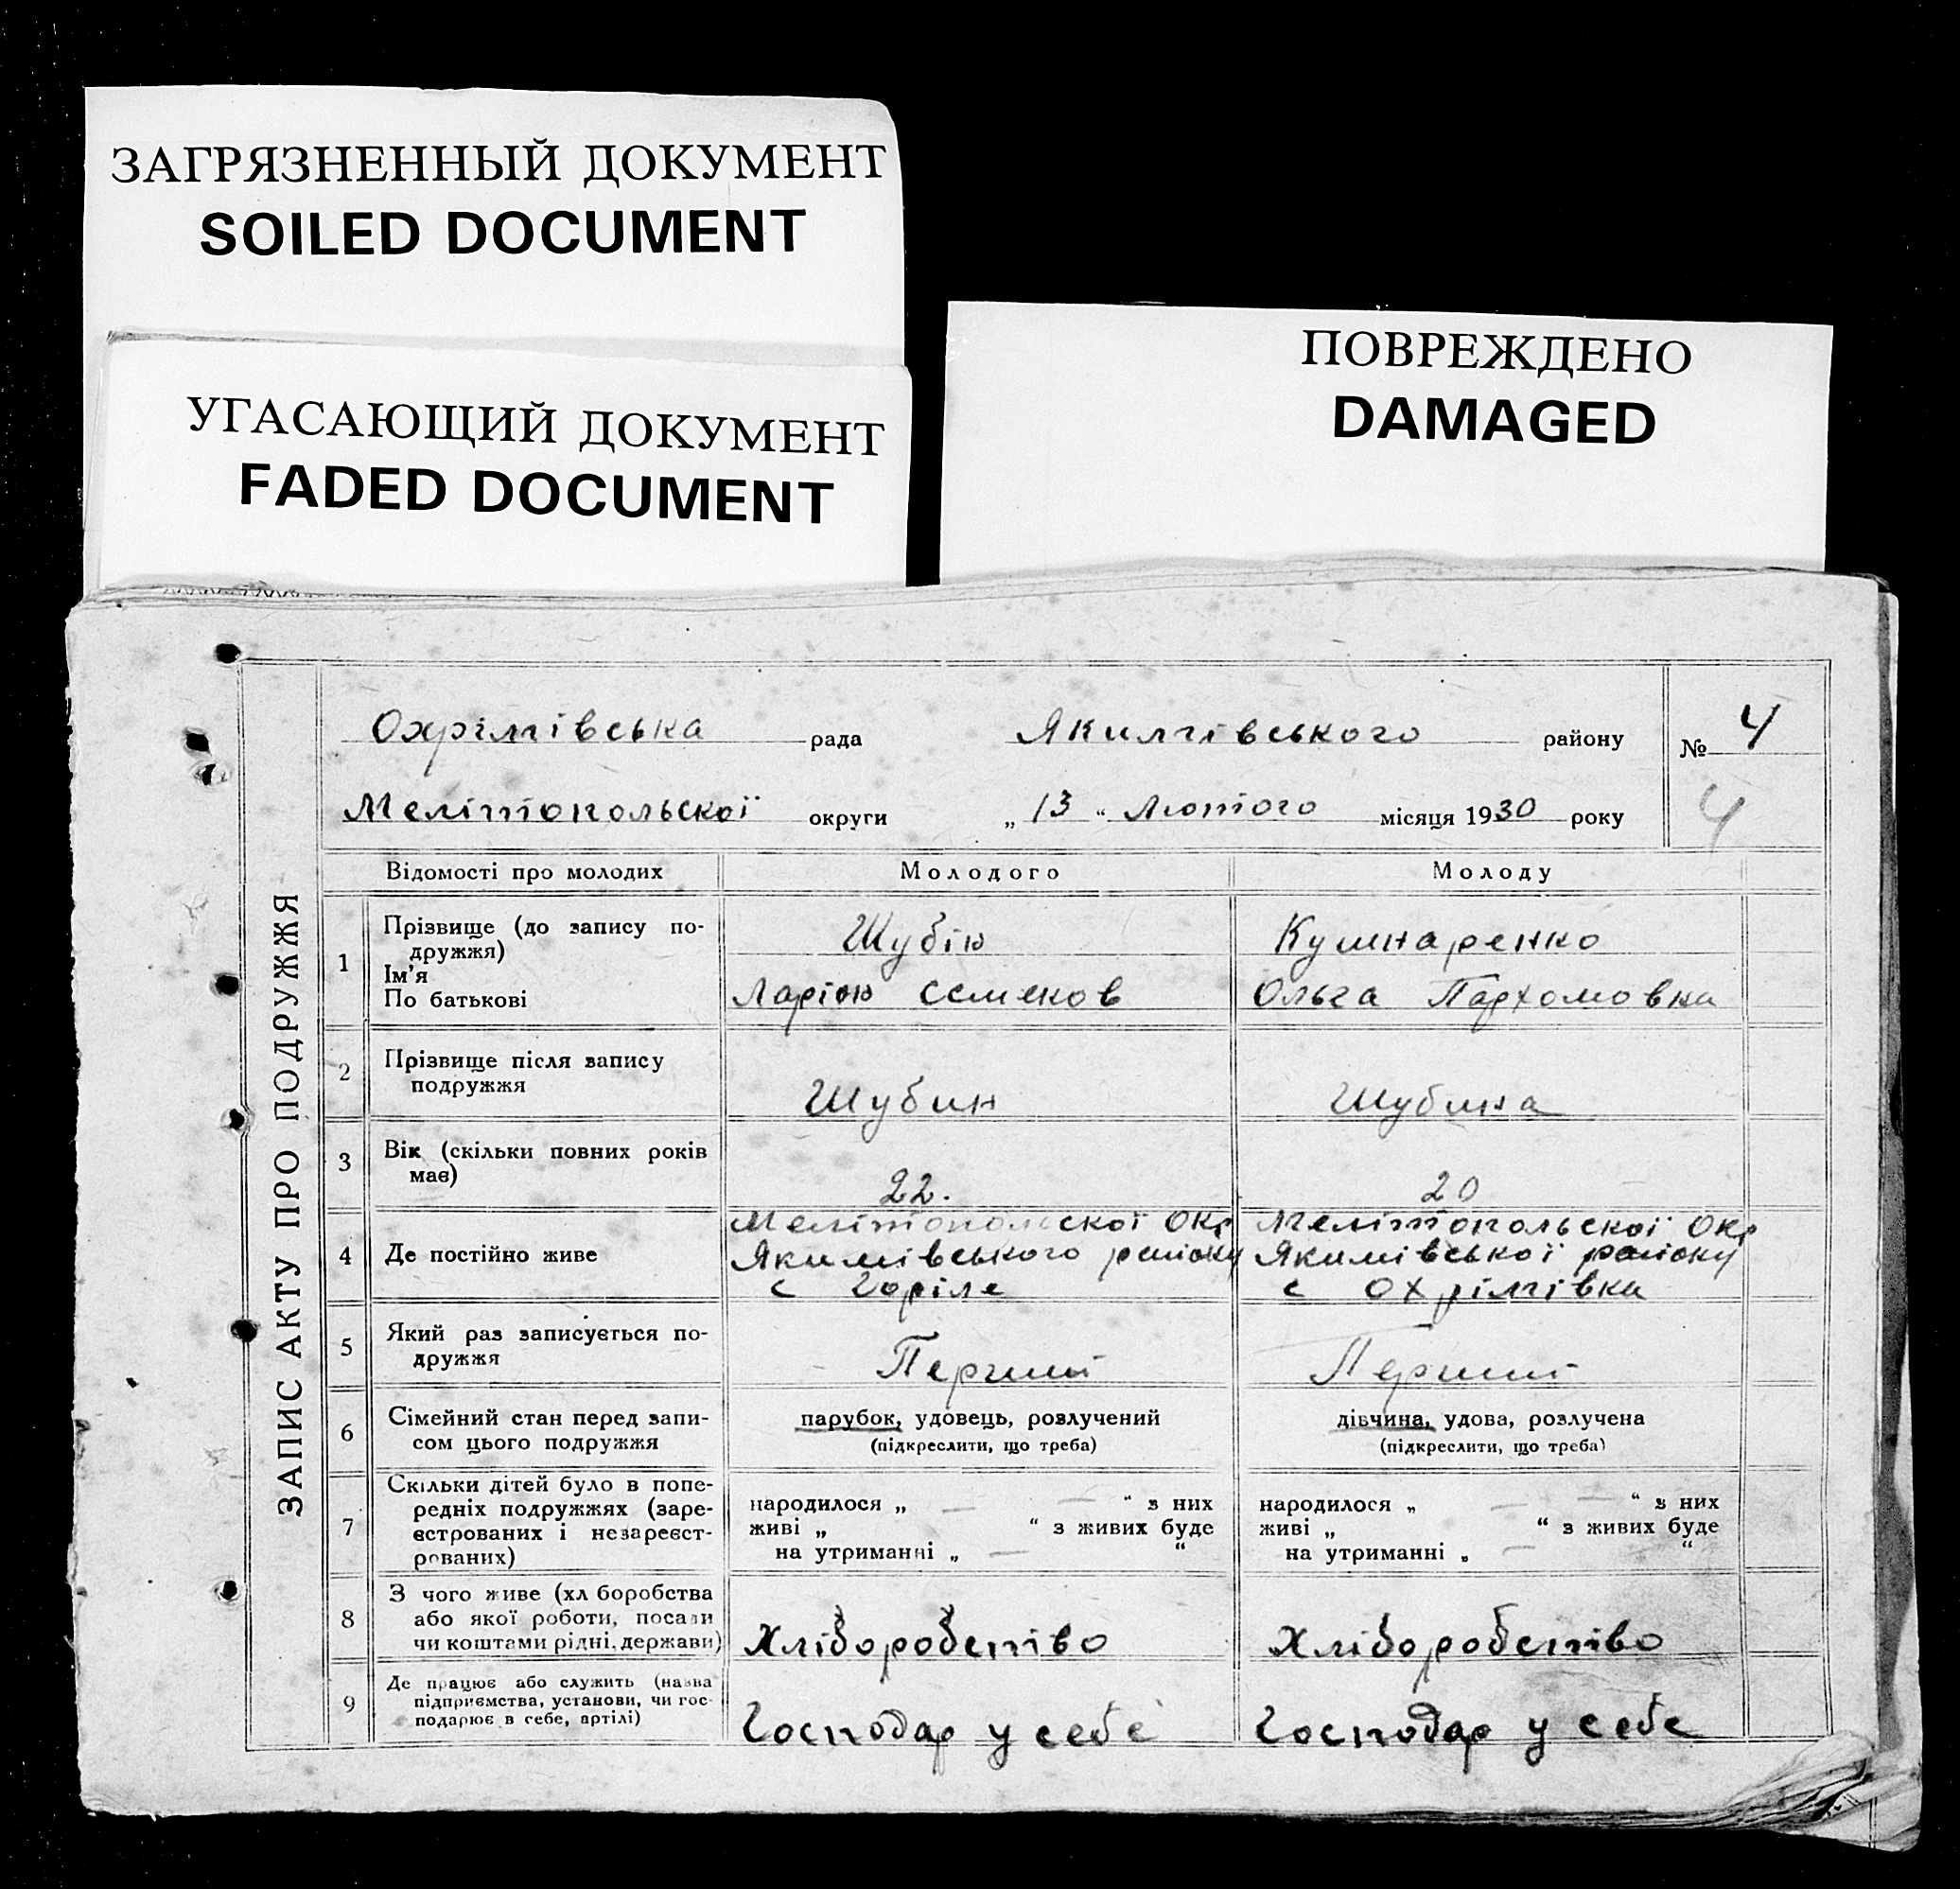 ЗАГРЯЗНЕННЫЙ ДОКУМЕНТ
SOILED DOCUMENT
УГАСАЮЩИЙ ДОКУМЕНТ
FADED DOCUMENT
ПОВРЕЖДЕНО
DAMAGED
ЗАПИС АКТУ ПРО ПОДРУЖЖЯ
Охрімівська рада Якимівського району № 4
Мелітопольської округи „13“ Лютого місяця 1930 року 4
Відомості про молодих Молодого Молоду
1 Прізвище (до запису по-
дружжя)
Ім'я
По батькові
Шубін
Ларіон Семенов
Кушнаренко
Ольга Пархомовна
2 Прізвище після запису
подружжя
Шубин
Шубина
3 Вік (скільки повних років
має)
22.
20
4 Де постійно живе
Мелітопольскої Окр
Якимівського району
с Горіле
Мелітопольскої Окр
Якимівської району
с Охрімівка
5 Який раз записується по-
дружжя
Перший
Перший
6 Сімейний стан перед запи-
сом цього подружжя
парубок, удовець, розлучений
(підкреслити, що треба)
дівчина, удова, розлучена
(підкреслити, що треба)
7 Скільки дітей було в попе-
редніх подружжях (заре-
єстрованих і незареєст-
рованих)
народилося „ — — “ з них
живі „ “ з живих буде
на утриманні „ — “
народилося „ — — “ з них
живі „ “ з живих буде
на утриманні „ — “
8 З чого живе (хліборобства
або якої роботи, посади
чи коштами рідні, держави)
Хліборобство
Хліборобство
9 Де працює або служить (назва
підприємства, установи, чи гос-
подарює в себе, артілі)
Господар у себе
Господар у себе